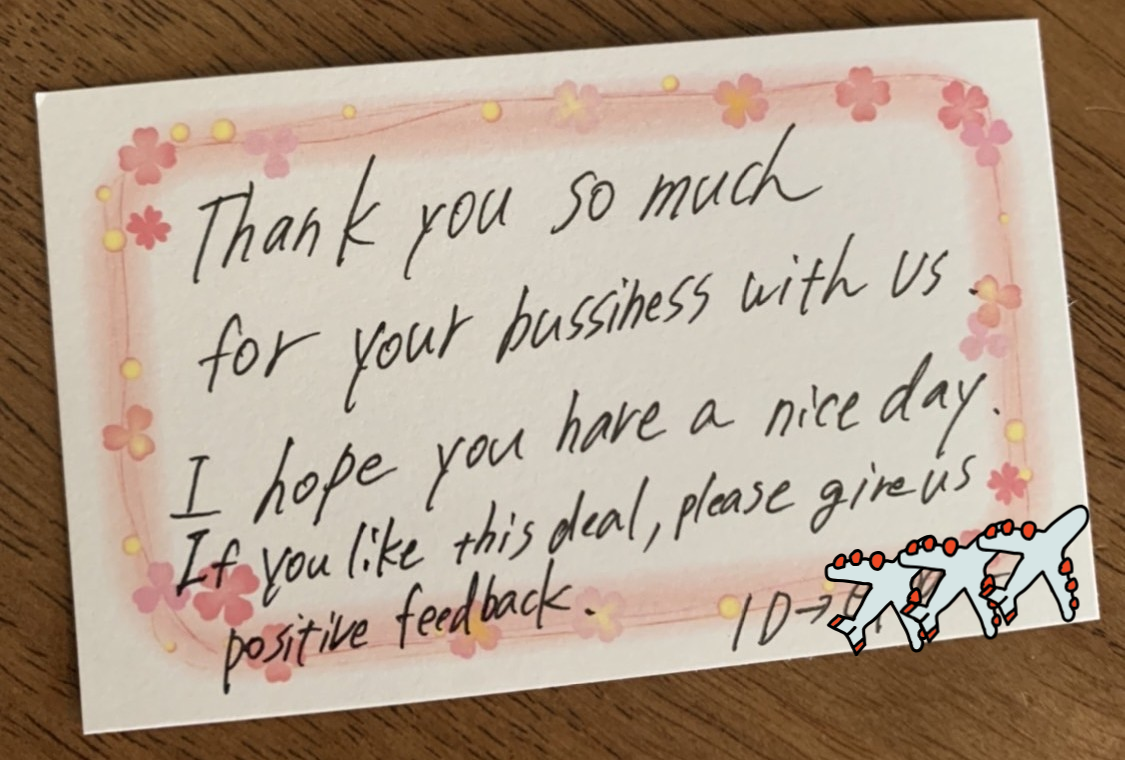 Thank you so much
for your bussiness with us.
I hope you have a nice day.
If you like this deal, please give us
positive feedback.
ID→